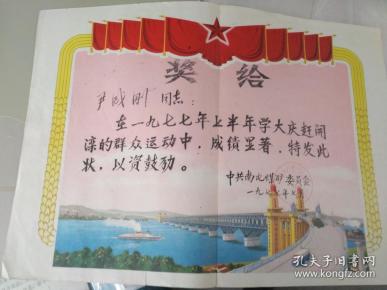 奖给
尹成刚 同志：
在一九七七年上半年学大庆赶开
滦的群众运动中，成绩显著，特发此
状，以资鼓励。
中共南
煤矿委员会
一九七
孔夫子旧书网